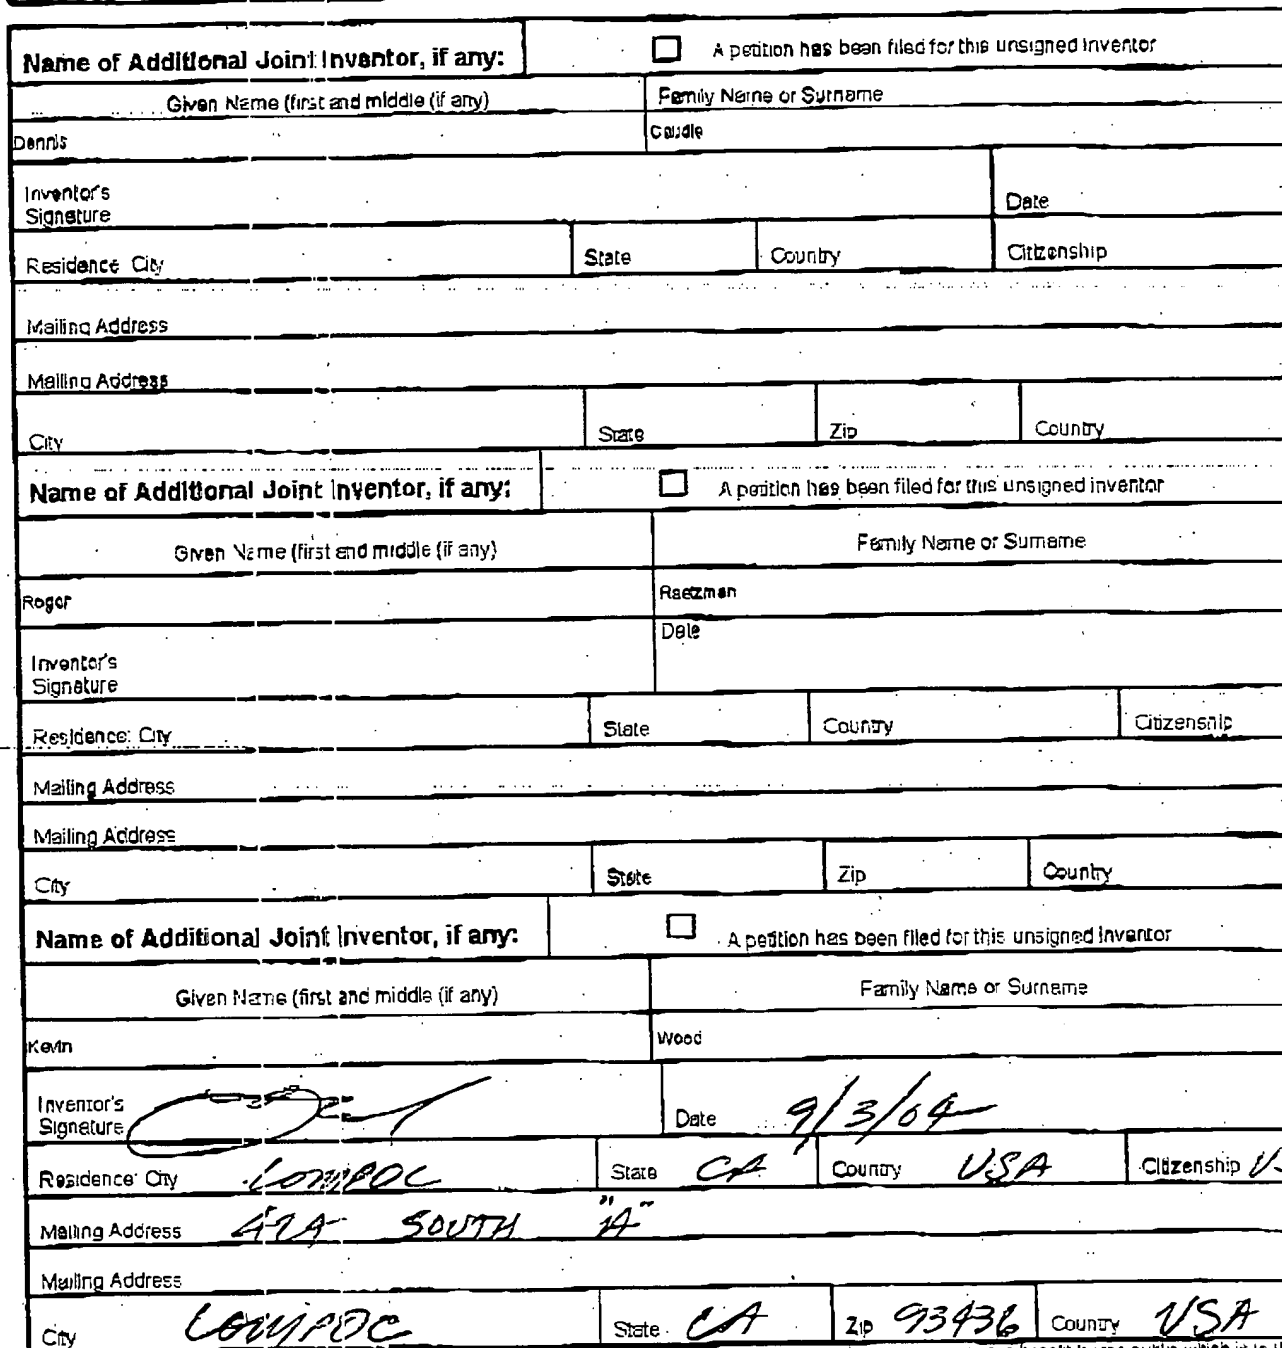 Name of Additional Joint Inventor, if any: A petition has been filed for this unsigned Inventor
Given Name (first and middle (if any) Family Name or Surname
Dennis Caudle
Inventor's
Signature Date
Residence City State Country Citizenship
Mailing Address
Mailing Address
City State Zip Country
Name of Additional Joint Inventor, if any: A petition has been filed for this unsigned inventor
Given Name (first and middle (if any) Family Name or Surname
Roger Raetzman
Date
Inventor's
Signature
Residence: City State Country Citizenship
Mailing Address
Mailing Address
City State Zip Country
Name of Additional Joint Inventor, if any: A petition has been filed for this unsigned Inventor
Given Name (first and middle (if any) Family Name or Surname
Kevin Wood
Inventor's
Signature Date 9/3/04
Residence: City LOMPOC State CA Country USA Citizenship
Mailing Address SOUTH "A"
Mailing Address
City LOMPOC State CA Zip 93436 Country USA